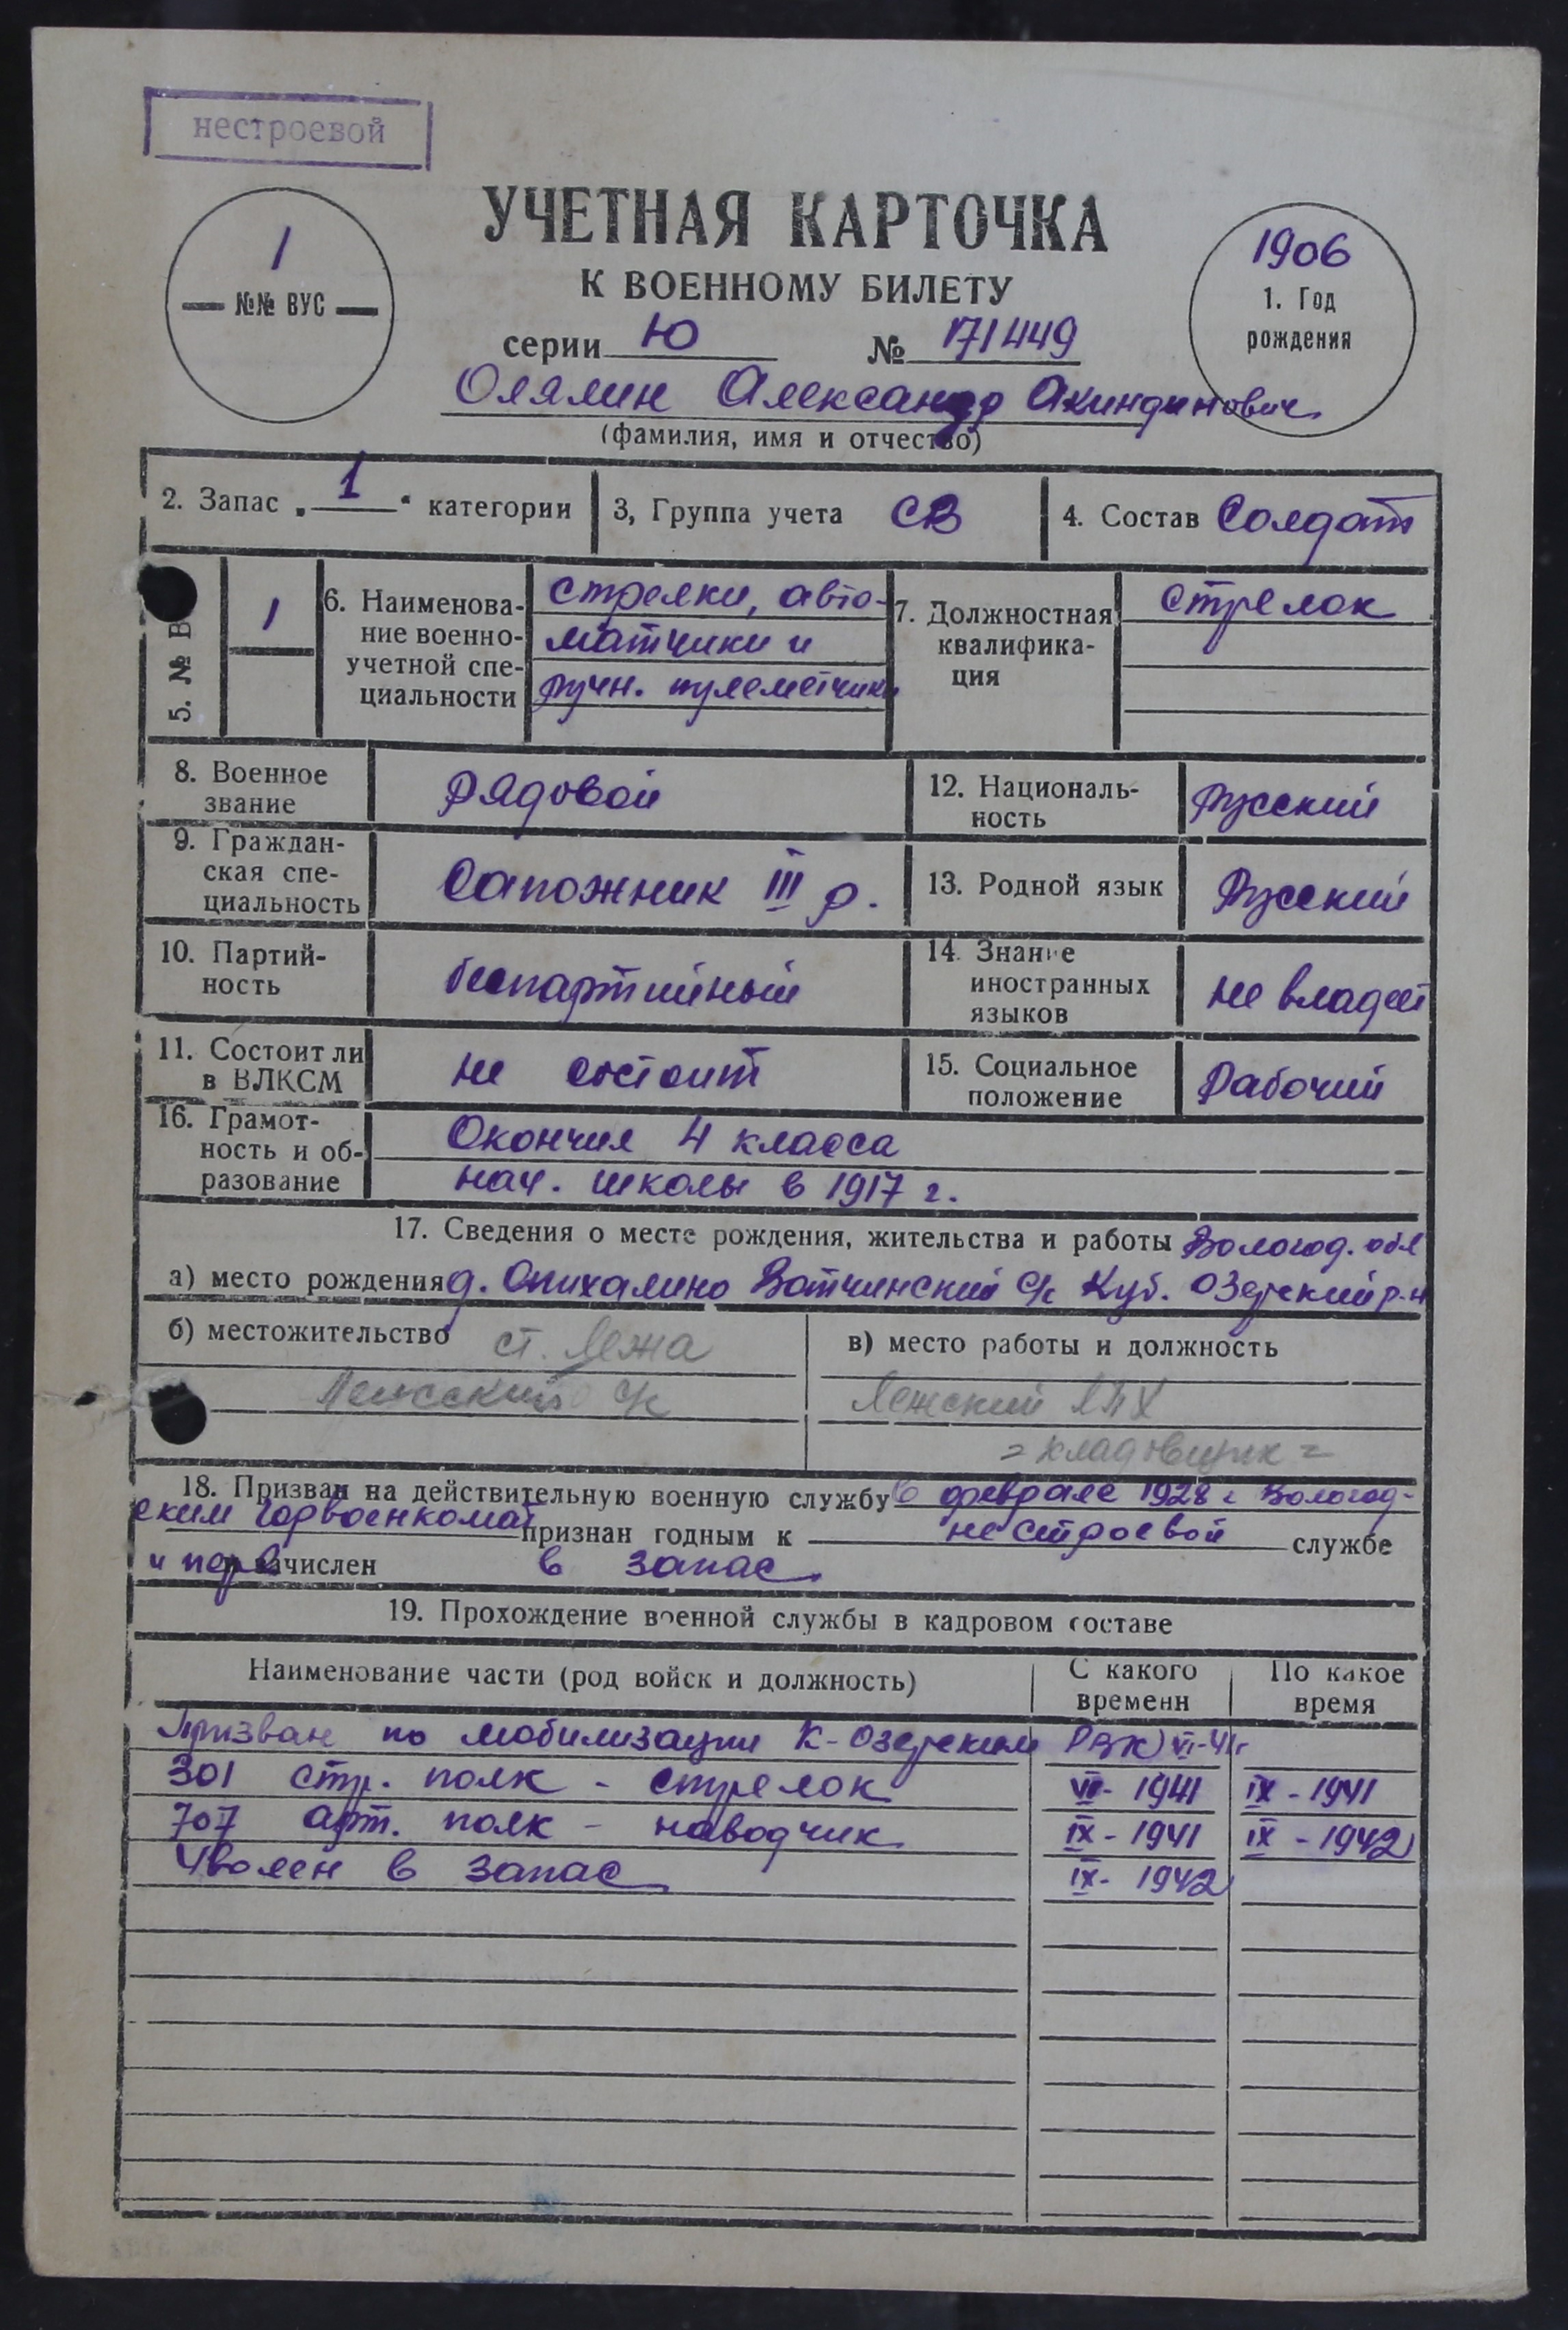 нестроевой
УЧЕТНАЯ КАРТОЧКА
К ВОЕННОМУ БИЛЕТУ
1
№№ ВУС
1906
1. Год
рождения
серии Ю № 171449
Олялин Александр Акиндинович
(фамилия, имя и отчество)
2. Запас „1“ категории
3, Группа учета СВ
4. Состав Солдат
5. № В
1
6. Наименова-
ние военно-
учетной спе-
циальности
стрелки, авто-
матчики и
ручн. пулеметчики
7. Должностная
квалифика-
ция
стрелок
8. Военное
звание
рядовой
12. Националь-
ность
русский
9. Граждан-
ская спе-
циальность
Сапожник III р.
13. Родной язык
Русский
10. Партий-
ность
беспартийный
14. Знание
иностранных
языков
не владеет
11. Состоит ли
в ВЛКСМ
не состоит
15. Социальное
положение
Рабочий
16. Грамот-
ность и об-
разование
Окончил 4 класса
нач. школы в 1917 г.
17. Сведения о месте рождения, жительства и работы Вологод. обл
а) место рождения д. Опихалино Вотчинский с/с Куб. Озерский р-н
б) местожительство ст. Лежа
Лежский с/с
в) место работы и должность
Лежский ЛПХ
= кладовщик =
18. Призван на действительную военную службу в феврале 1928 г Вологод-
ским горвоенкомат признан годным к нестроевой службе
и зачислен в запас
19. Прохождение военной службы в кадровом составе
Наименование части (род войск и должность)
С какого
времени
По какое
время
Призван по мобилизации К-Озерским РВК VI-41г
301 стр. полк - стрелок VII- 1941 IX - 1941
707 арт. полк - наводчик IX - 1941 IX - 1942
Уволен в запас IX- 1942